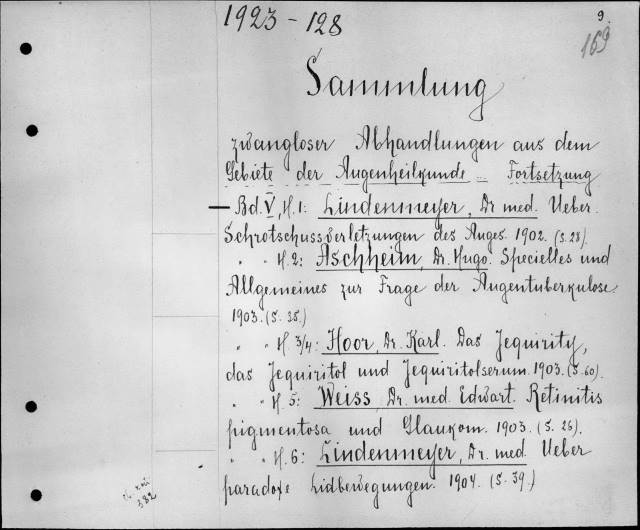 1923 - 128
9.
169
Sammlung
zwangloser Abhandlungen aus dem
Gebiete der Augenheilkunde - Fortsetzung
Bd. V, H. 1: Lindenmeyer, Dr med. Ueber
Schrotschussverletzungen des Auges. 1902. (S. 28).
" " H. 2: Aschheim, Dr. Hugo. Specielles und
Allgemeines zur Frage der Augentuberkulose.
1903. (S. 35.)
" " H. 3/4: Hoor, Dr. Karl. Das Jequirity,
das Jequiritol und Jequiritolserum. 1903. (S. 60).
" " H. 5: Weiss, Dr. med. Edwart. Retinitis
pigmentosa und Glaukom. 1903. (S. 26).
" " H. 6: Lindenmeyer, Dr. med. Ueber
paradoxe Lidbewegungen. 1904. (S. 39.)
382